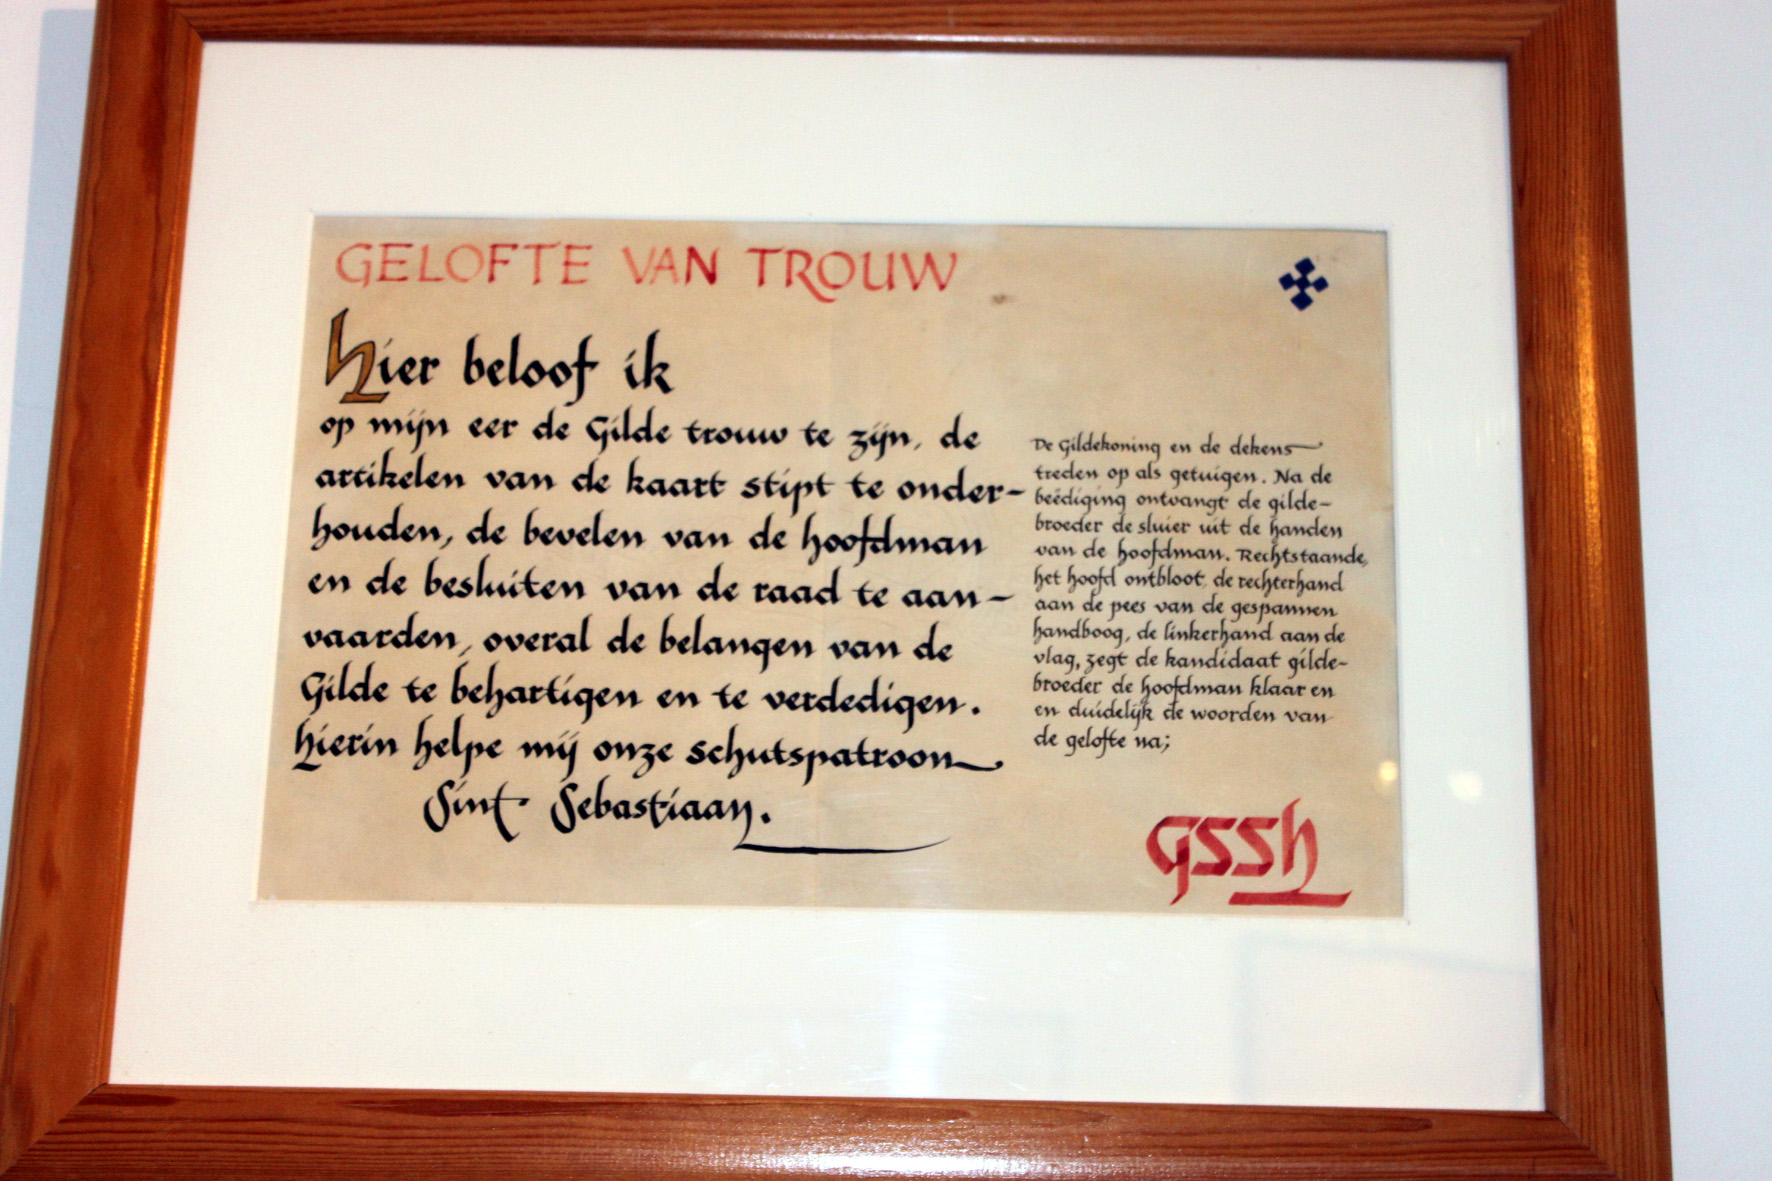 GELOFTE VAN TROUW
Hier beloof ik
op mijn eer de Gilde trouw te zijn, de
artikelen van de kaart stipt te onder-
houden, de bevelen van de hoofdman
en de besluiten van de raad te aan-
vaarden, overal de belangen van de
Gilde te behartigen en te verdedigen.
Hierin helpe mij onze schutspatroon
Sint Sebastiaan.
De Gildekoning en de dekens
treden op als getuigen. Na de
beëdiging ontvangt de gilde-
broeder de sluier uit de handen
van de hoofdman. Rechtstaande,
het hoofd ontbloot, de rechterhand
aan de pees van de gespannen
handboog, de linkerhand aan de
vlag, zegt de kandidaat gilde-
broeder de hoofdman klaar en
en duidelijk de woorden van
de gelofte na;
GSSH